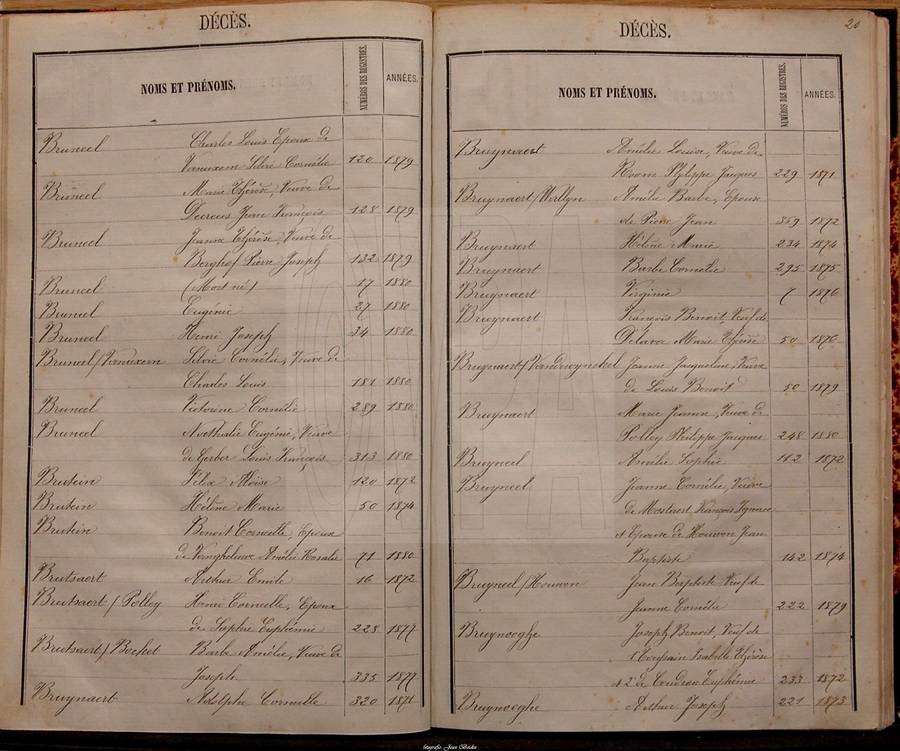 DÉCÈS.
NOMS ET PRÉNOMS.
NUMÉROS DES REGISTRES.
ANNÉES.
Bruneel Charles Louis Epoux de
Vanuxem Silvie Cornélie 120 1879
Bruneel Marie Thérèse, Veuve de
Jean François 128 1879
Bruneel Jeanne Thérèse, Veuve de
Berghof Pierre Joseph 132 1879
Bruneel (Mort né) 17 1880
Bruneel Eugénie 27 1880
Bruneel Henri Joseph 34 1880
Bruneel/Vanuxem Silvie Cornélie, Veuve de
Charles Louis 181 1880
Bruneel Victorine Cornélie 289 1880
Bruneel Nathalie Eugénie, Veuve
de Gerber Louis François 313 1880
Brutein Félix Moïse 120 1872
Brutein Hélène Marie 50 1874
Brutein Benoit Corneille, Epoux
de Amélie Rosalie 71 1880
Brutsaert Arthur Emile 16 1872
Brutsaert / Polley Henri Corneille, Epoux
de Sophie Euphémie 228 1877
Brutsaert/Bochet Barbe Amélie, Veuve de
Joseph 335 1877
Bruynaert Adolphe Corneille 320 1871
20
DÉCÈS.
NOMS ET PRÉNOMS.
NUMÉROS DES REGISTRES.
ANNÉES.
Bruynaert Amélie Louise, Veuve de
Room Philippe Jacques 229 1871
Bruynaert/Merlyn Amélie Barbe, Epouse
de Pierre Jean 369 1872
Bruynaert Hélène Marie 234 1874
Bruynaert Barbe Cornélie 295 1875
Bruynaert Virginie 7 1876
Bruynaert François Benoit, Veuf de
Delavoa Marie Thérèse 50 1876
Bruynaert/ Jeanne Jacqueline, Veuve
de Louis Benoit 50 1879
Bruynaert Marie Jeanne, Veuve de
Polley Philippe Jacques 248 1880
Bruyneel Amélie Sophie 142 1872
Bruyneel Jeanne Cornélie, Veuve
de Mostaert, François Ignace
& Epouse de Houwon Jean
Baptiste 142 1874
Bruyneel/Houwon Jean Baptiste, Veuf de
Jeanne Cornélie 222 1879
Bruynooghe Joseph Benoit, Veuf de
Isabelle Thérèse
& 2 de Euphémie 233 1872
Bruynooghe Arthur Joseph 221 1873
fotografie Jean Beckx